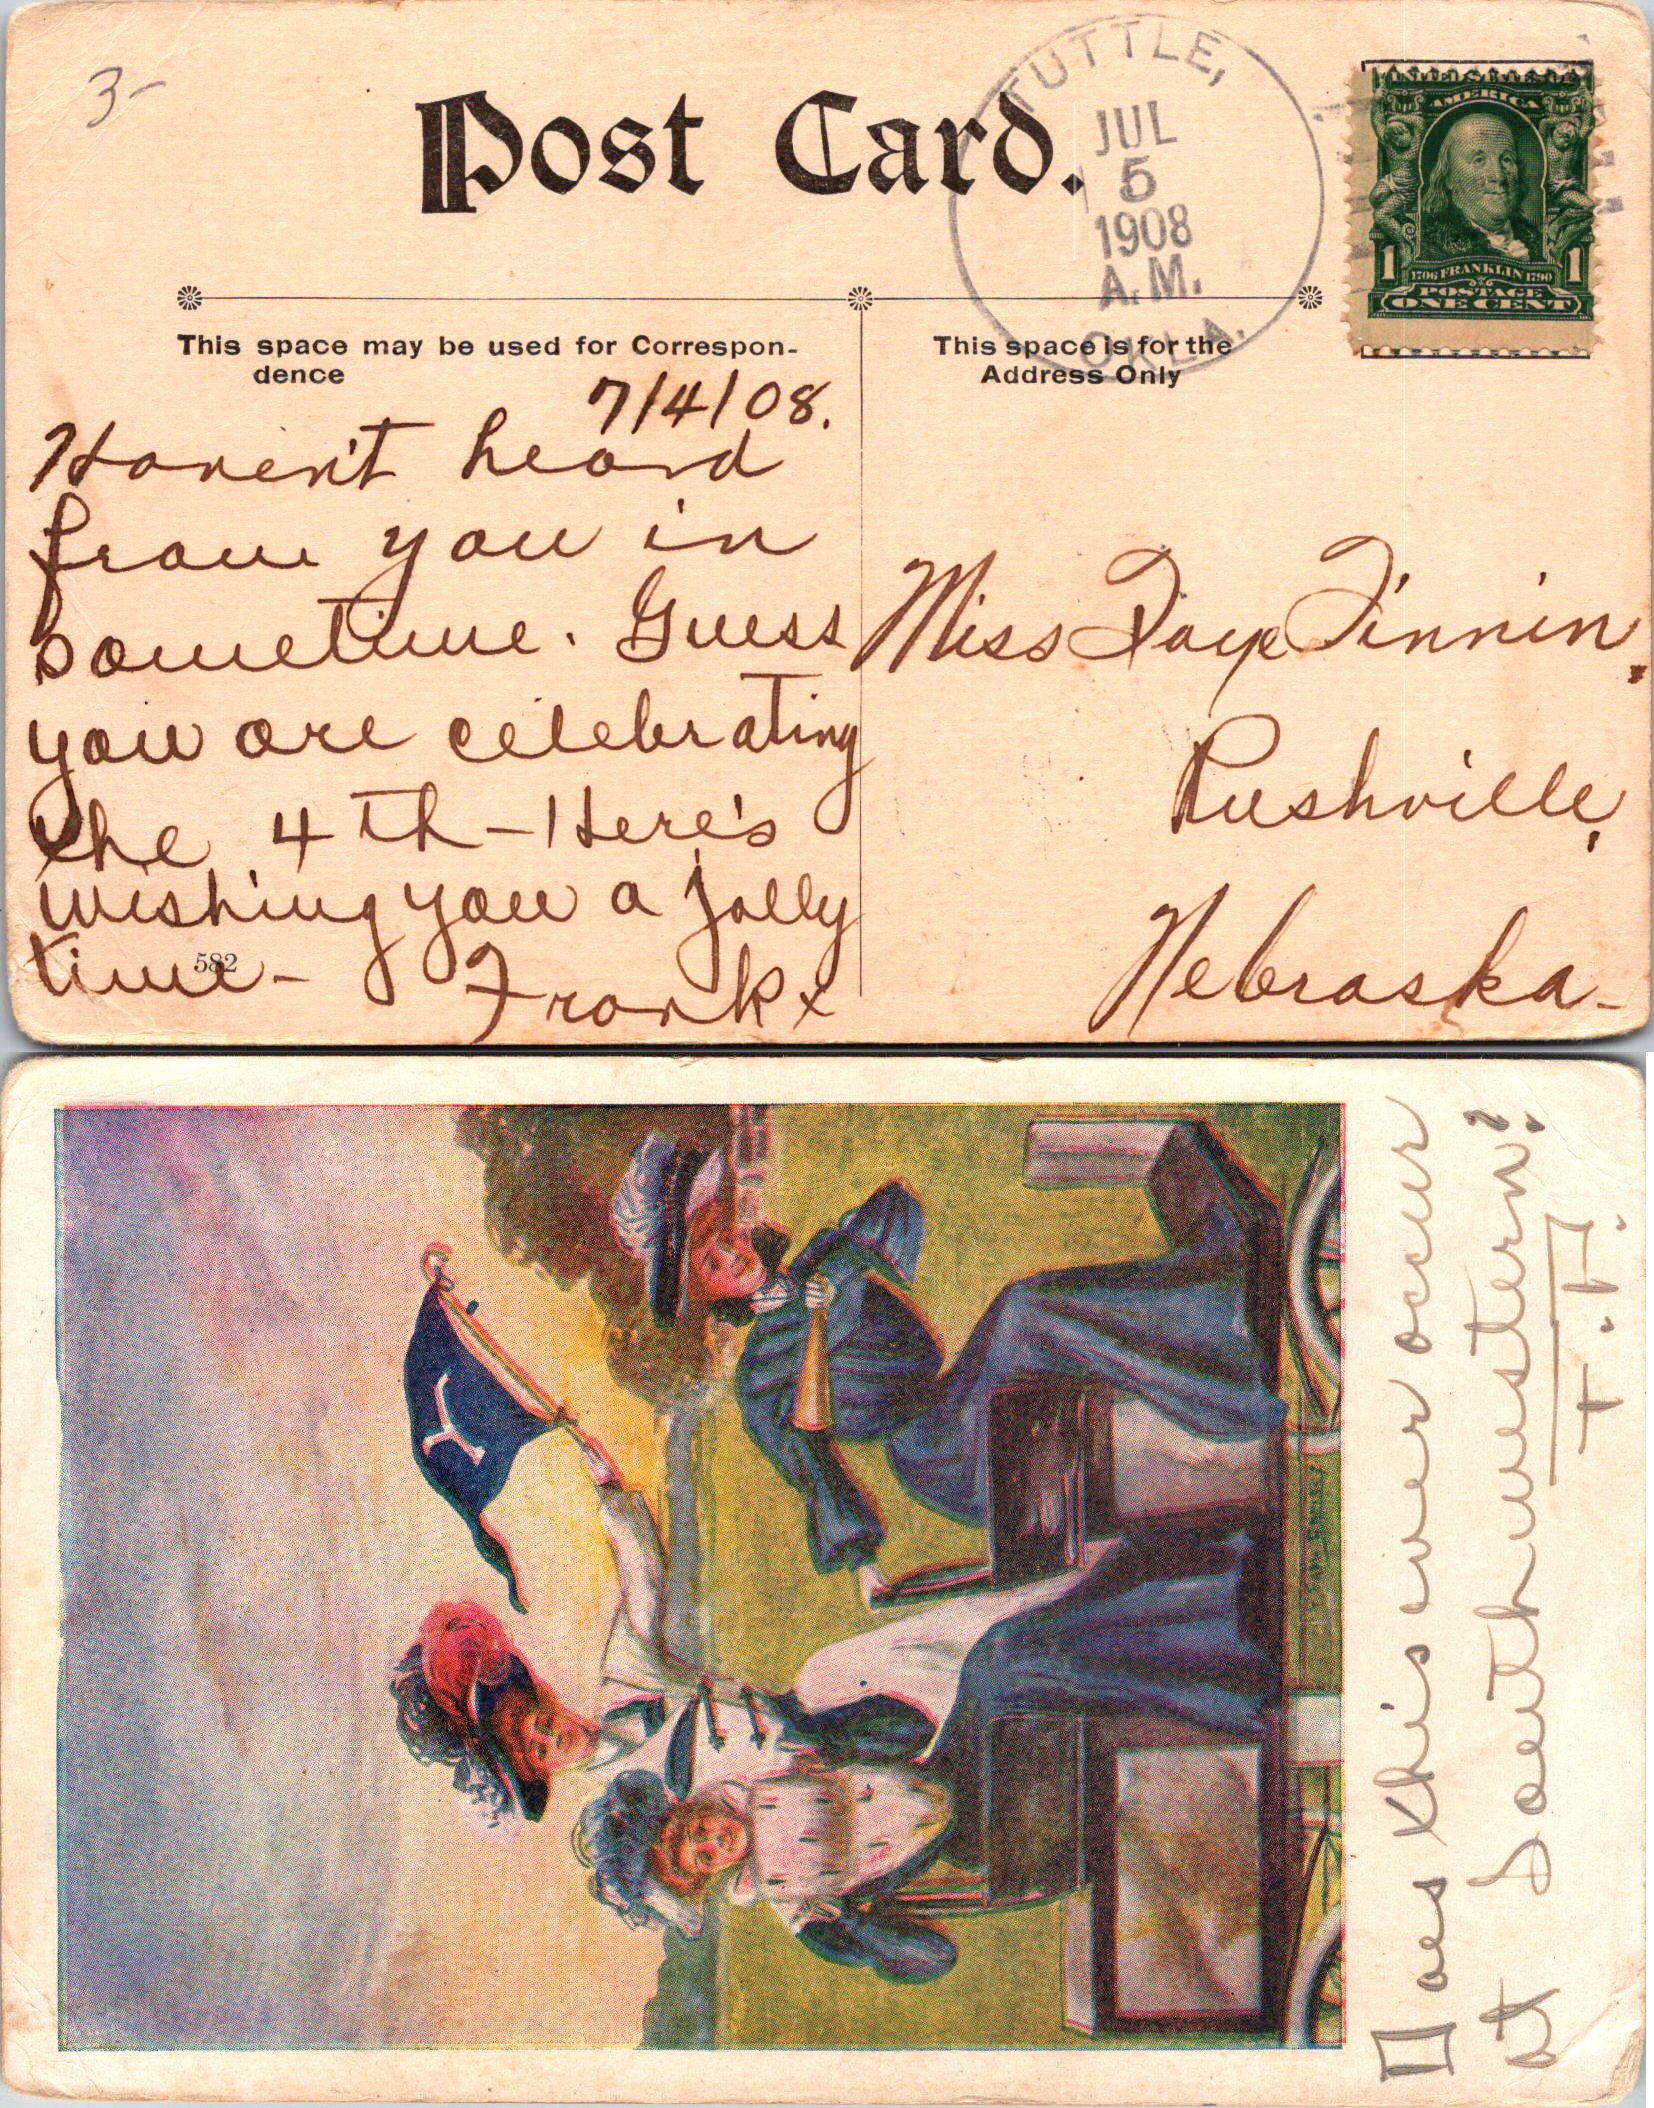 3-
Post Card.
TUTTLE,
JUL
5
1908
A.M.
OKLA.
UNITED STATES OF
AMERICA
1706 FRANKLIN 1790
1 1
POSTAGE
ONE CENT
This space may be used for Correspon-
dence
This space is for the
Address Only
7/4/08.
Haven't heard
from you in
sometime. Guess
you are celebrating
the 4th - Here's
wishing you a jolly
time -
Frank
582
Miss Faye Tinnin,
Rushville,
Nebraska -
Y
Does this ever occur
at Southwestern?
F. H.